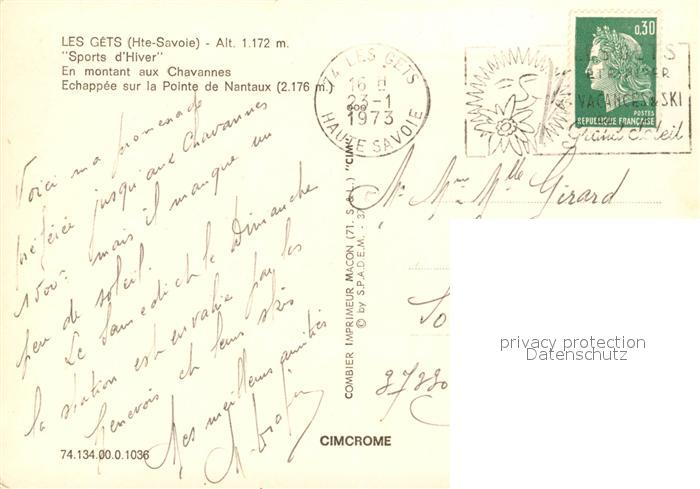 LES GÊTS (Hte-Savoie) - Alt. 1.172 m.
"Sports d'Hiver"
En montant aux Chavannes
Echappée sur la Pointe de Nantaux (2.176 m.)
74 LES GETS
16 H
23-1
1973
HAUTE SAVOIE
VACANCES & SKI
Grand Soleil
0,30
POSTES
REPUBLIQUE FRANÇAISE
Voici ma promenade
préférée jusqu'aux Chavannes
1500m mais il manque un
peu de soleil.
Le samedi et le dimanche
la station est envahie par les
Genevois et leurs skis
Mes meilleures amitiés
M. Mme Melle Girard
37220
COMBIER IMPRIMEUR MACON (71. S. & L.) "CIMC
© by S.P.A.D.E.M. - 37
privacy protection
Datenschutz
CIMCROME
74.134.00.0.1036